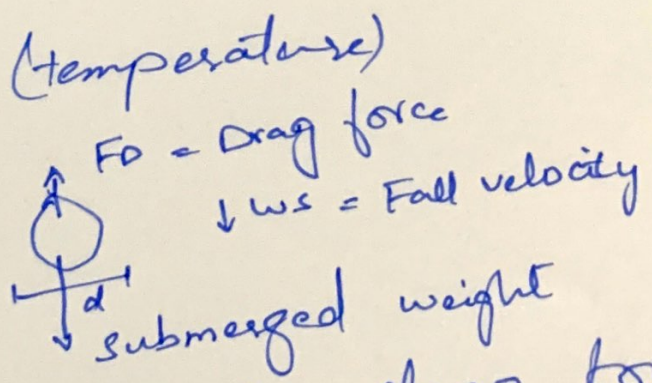 (temperature)
FD = Drag force
↓ ws = Fall velocity
d
submerged weight